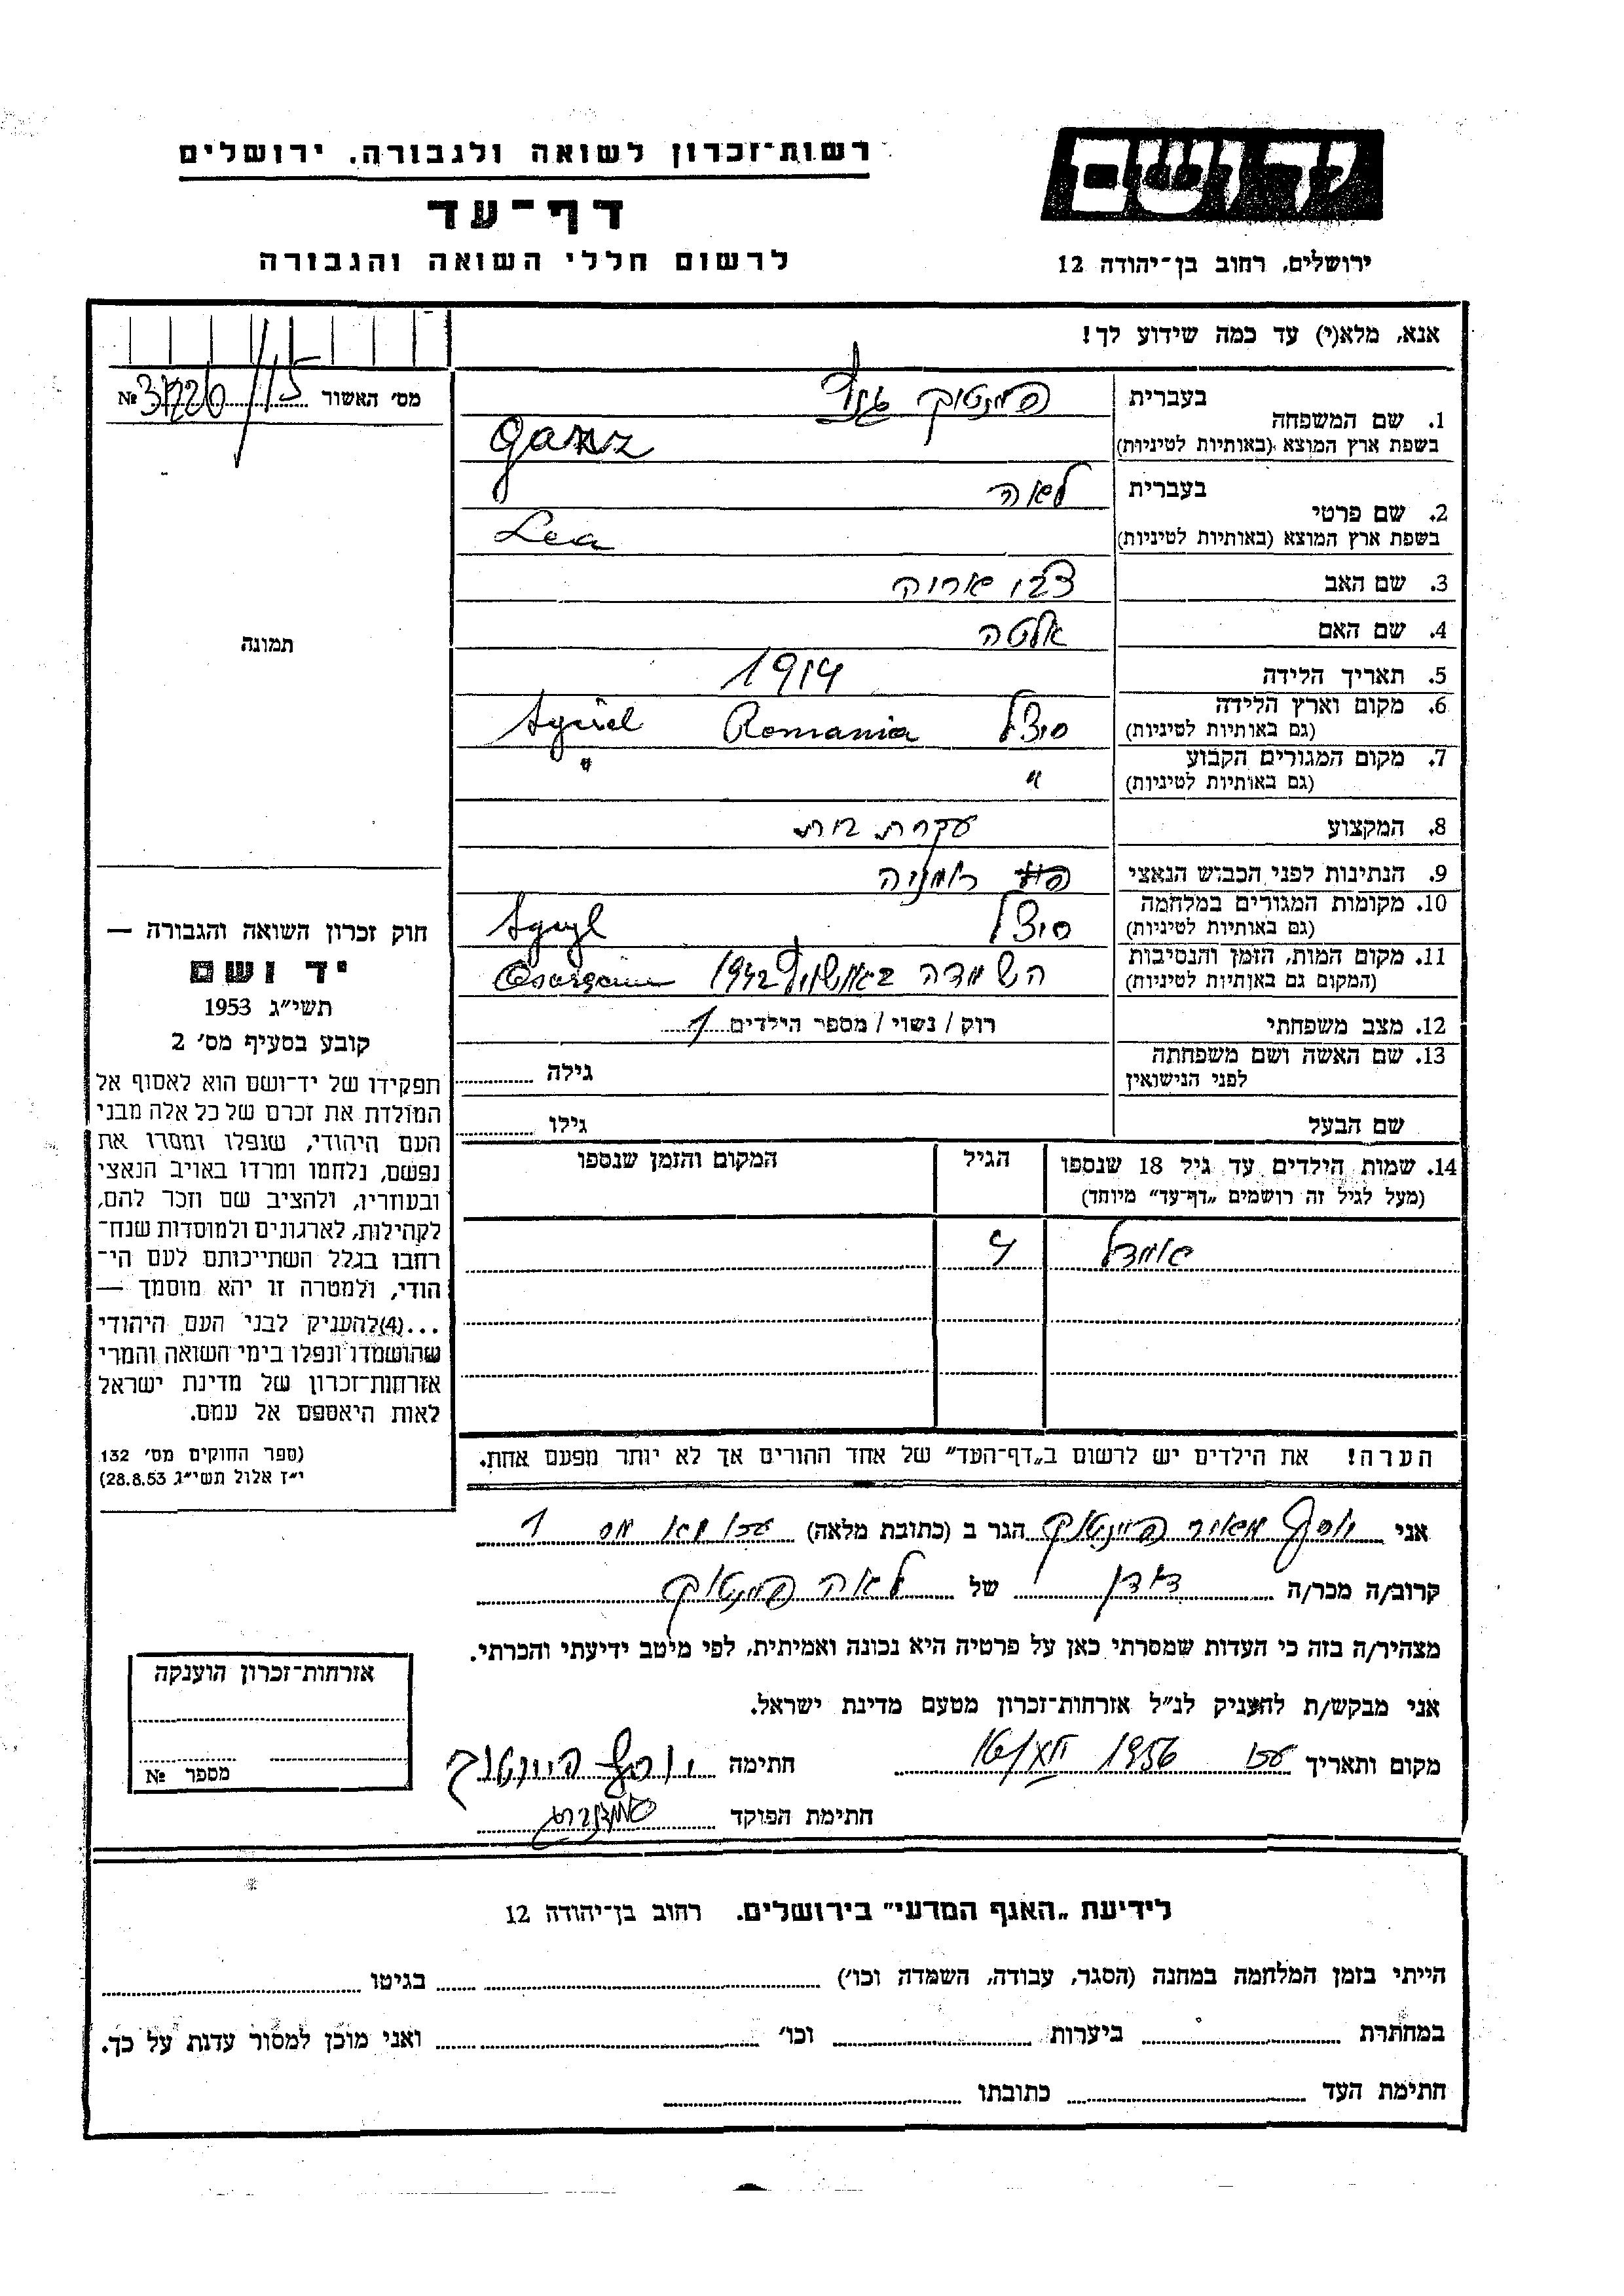 יד ושם
רשות־זכרון לשואה ולגבורה. ירושלים
דף־עד
ירושלים, רחוב בן־יהודה 12
לרשום חללי השואה והגבורה
אנא, מלא(י) עד כמה שידוע לך!
מס׳ האשור №
1. שם המשפחה
בעברית
בשפת ארץ המוצא (באותיות לטיניות) Ganz
2. שם פרטי
בעברית לאה
בשפת ארץ המוצא (באותיות לטיניות) Lea
3. שם האב צבי
4. שם האם אלטה
תמונה
5. תאריך הלידה 1914
6. מקום וארץ הלידה
(גם באותיות לטיניות) סיצל Romania
7. מקום המגורים הקבוע
(גם באותיות לטיניות) " "
8. המקצוע עקרת בית
9. הנתינות לפני הכבוש הנאצי רומניה
10. מקומות המגורים במלחמה
(גם באותיות לטיניות) סיצל
11. מקום המות, הזמן והנסיבות
(המקום גם באותיות לטיניות) השמדה באושוויץ
12. מצב משפחתי רוק / נשוי / מספר הילדים 1
13. שם האשה ושם משפחתה
לפני הנישואין גילה
שם הבעל גילו
14. שמות הילדים עד גיל 18 שנספו
(מעל לגיל זה רושמים „דף־עד" מיוחד)
הגיל
המקום והזמן שנספו
4
הערה! את הילדים יש לרשום ב„דף־העד" של אחד ההורים אך לא יותר מפעם אחת.
חוק זכרון השואה והגבורה —
יד ושם
תשי״ג 1953
קובע בסעיף מס׳ 2
תפקידו של יד־ושם הוא לאסוף אל
המולדת את זכרם של כל אלה מבני
העם היהודי, שנפלו ומסרו את
נפשם, נלחמו ומרדו באויב הנאצי
ובעוזריו, ולהציב שם וזכר להם,
לקהילות, לארגונים ולמוסדות שנח־
רחבו בגלל השתייכותם לעם הי־
הודי, ולמטרה זו יהא מוסמך —
...(4)להעניק לבני העם היהודי
שהושמדו ונפלו בימי השואה והמרי
אזרחות־זכרון של מדינת ישראל
לאות היאספם אל עמם.
(ספר החוקים מס׳ 132
י״ז אלול תשי״ג 28.8.53)
אני יוסף מאיר הגר ב (כתובת מלאה) עכו 1
קרוב/ה מכר/ה דודן של לאה
מצהיר/ה בזה כי העדות שמסרתי כאן על פרטיה היא נכונה ואמיתית, לפי מיטב ידיעתי והכרתי.
אני מבקש/ת להעניק לנ״ל אזרחות־זכרון מטעם מדינת ישראל.
מקום ותאריך עכו 1956 חתימה יוסף
חתימת הפוקד
אזרחות־זכרון הוענקה
מספר №
לידיעת „האגף המדעי" בירושלים. רחוב בן־יהודה 12
הייתי בזמן המלחמה במחנה (הסגר, עבודה, השמדה וכו׳) בגיטו
במחתרת ביערות וכו׳ ואני מוכן למסור עדות על כך.
חתימת העד כתובתו